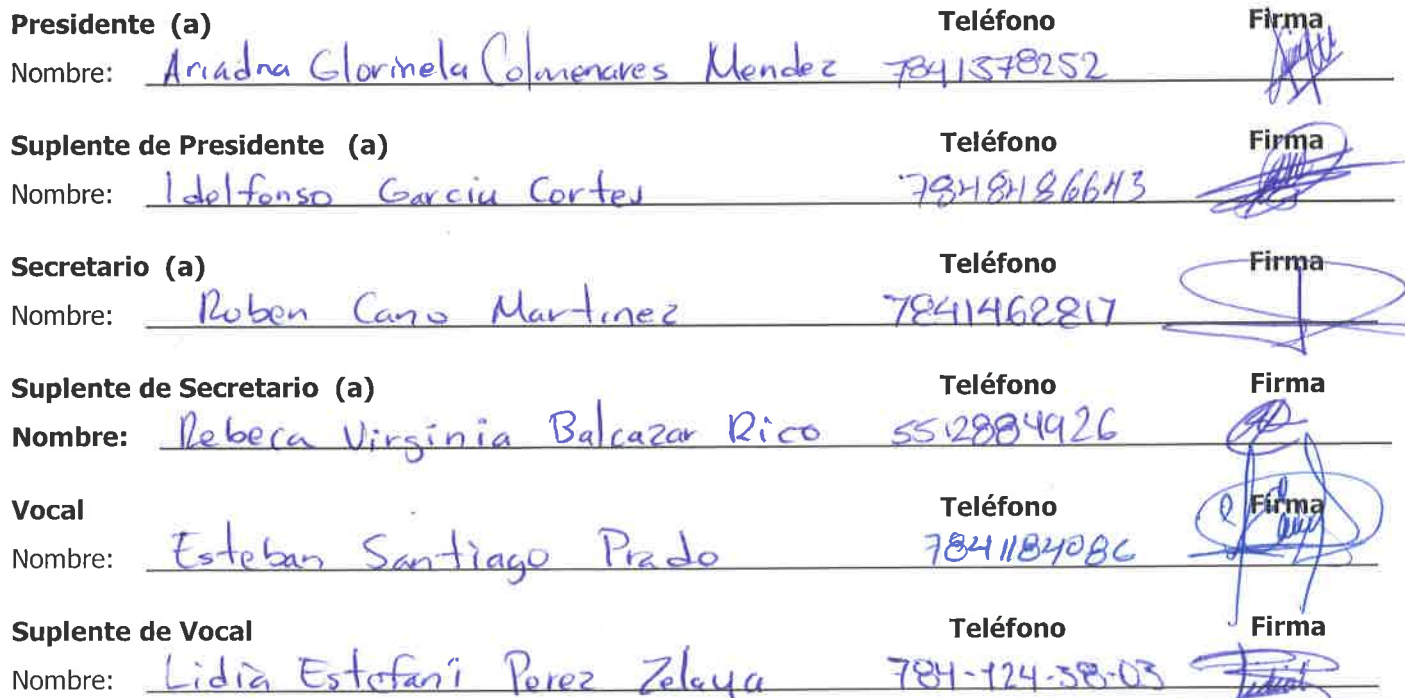 Presidente (a) Teléfono Firma
Nombre: Ariadna Glorinela Colmenares Mendez 7841378252
Suplente de Presidente (a) Teléfono Firma
Nombre: Idelfonso Garcia Cortes 7848486643
Secretario (a) Teléfono Firma
Nombre: Ruben Cano Martinez 7841462817
Suplente de Secretario (a) Teléfono Firma
Nombre: Rebeca Virginia Balcazar Rico 5512884926
Vocal Teléfono Firma
Nombre: Esteban Santiago Prado 7841184086
Suplente de Vocal Teléfono Firma
Nombre: Lidia Estefani Perez Zelaya 784-124-38-03